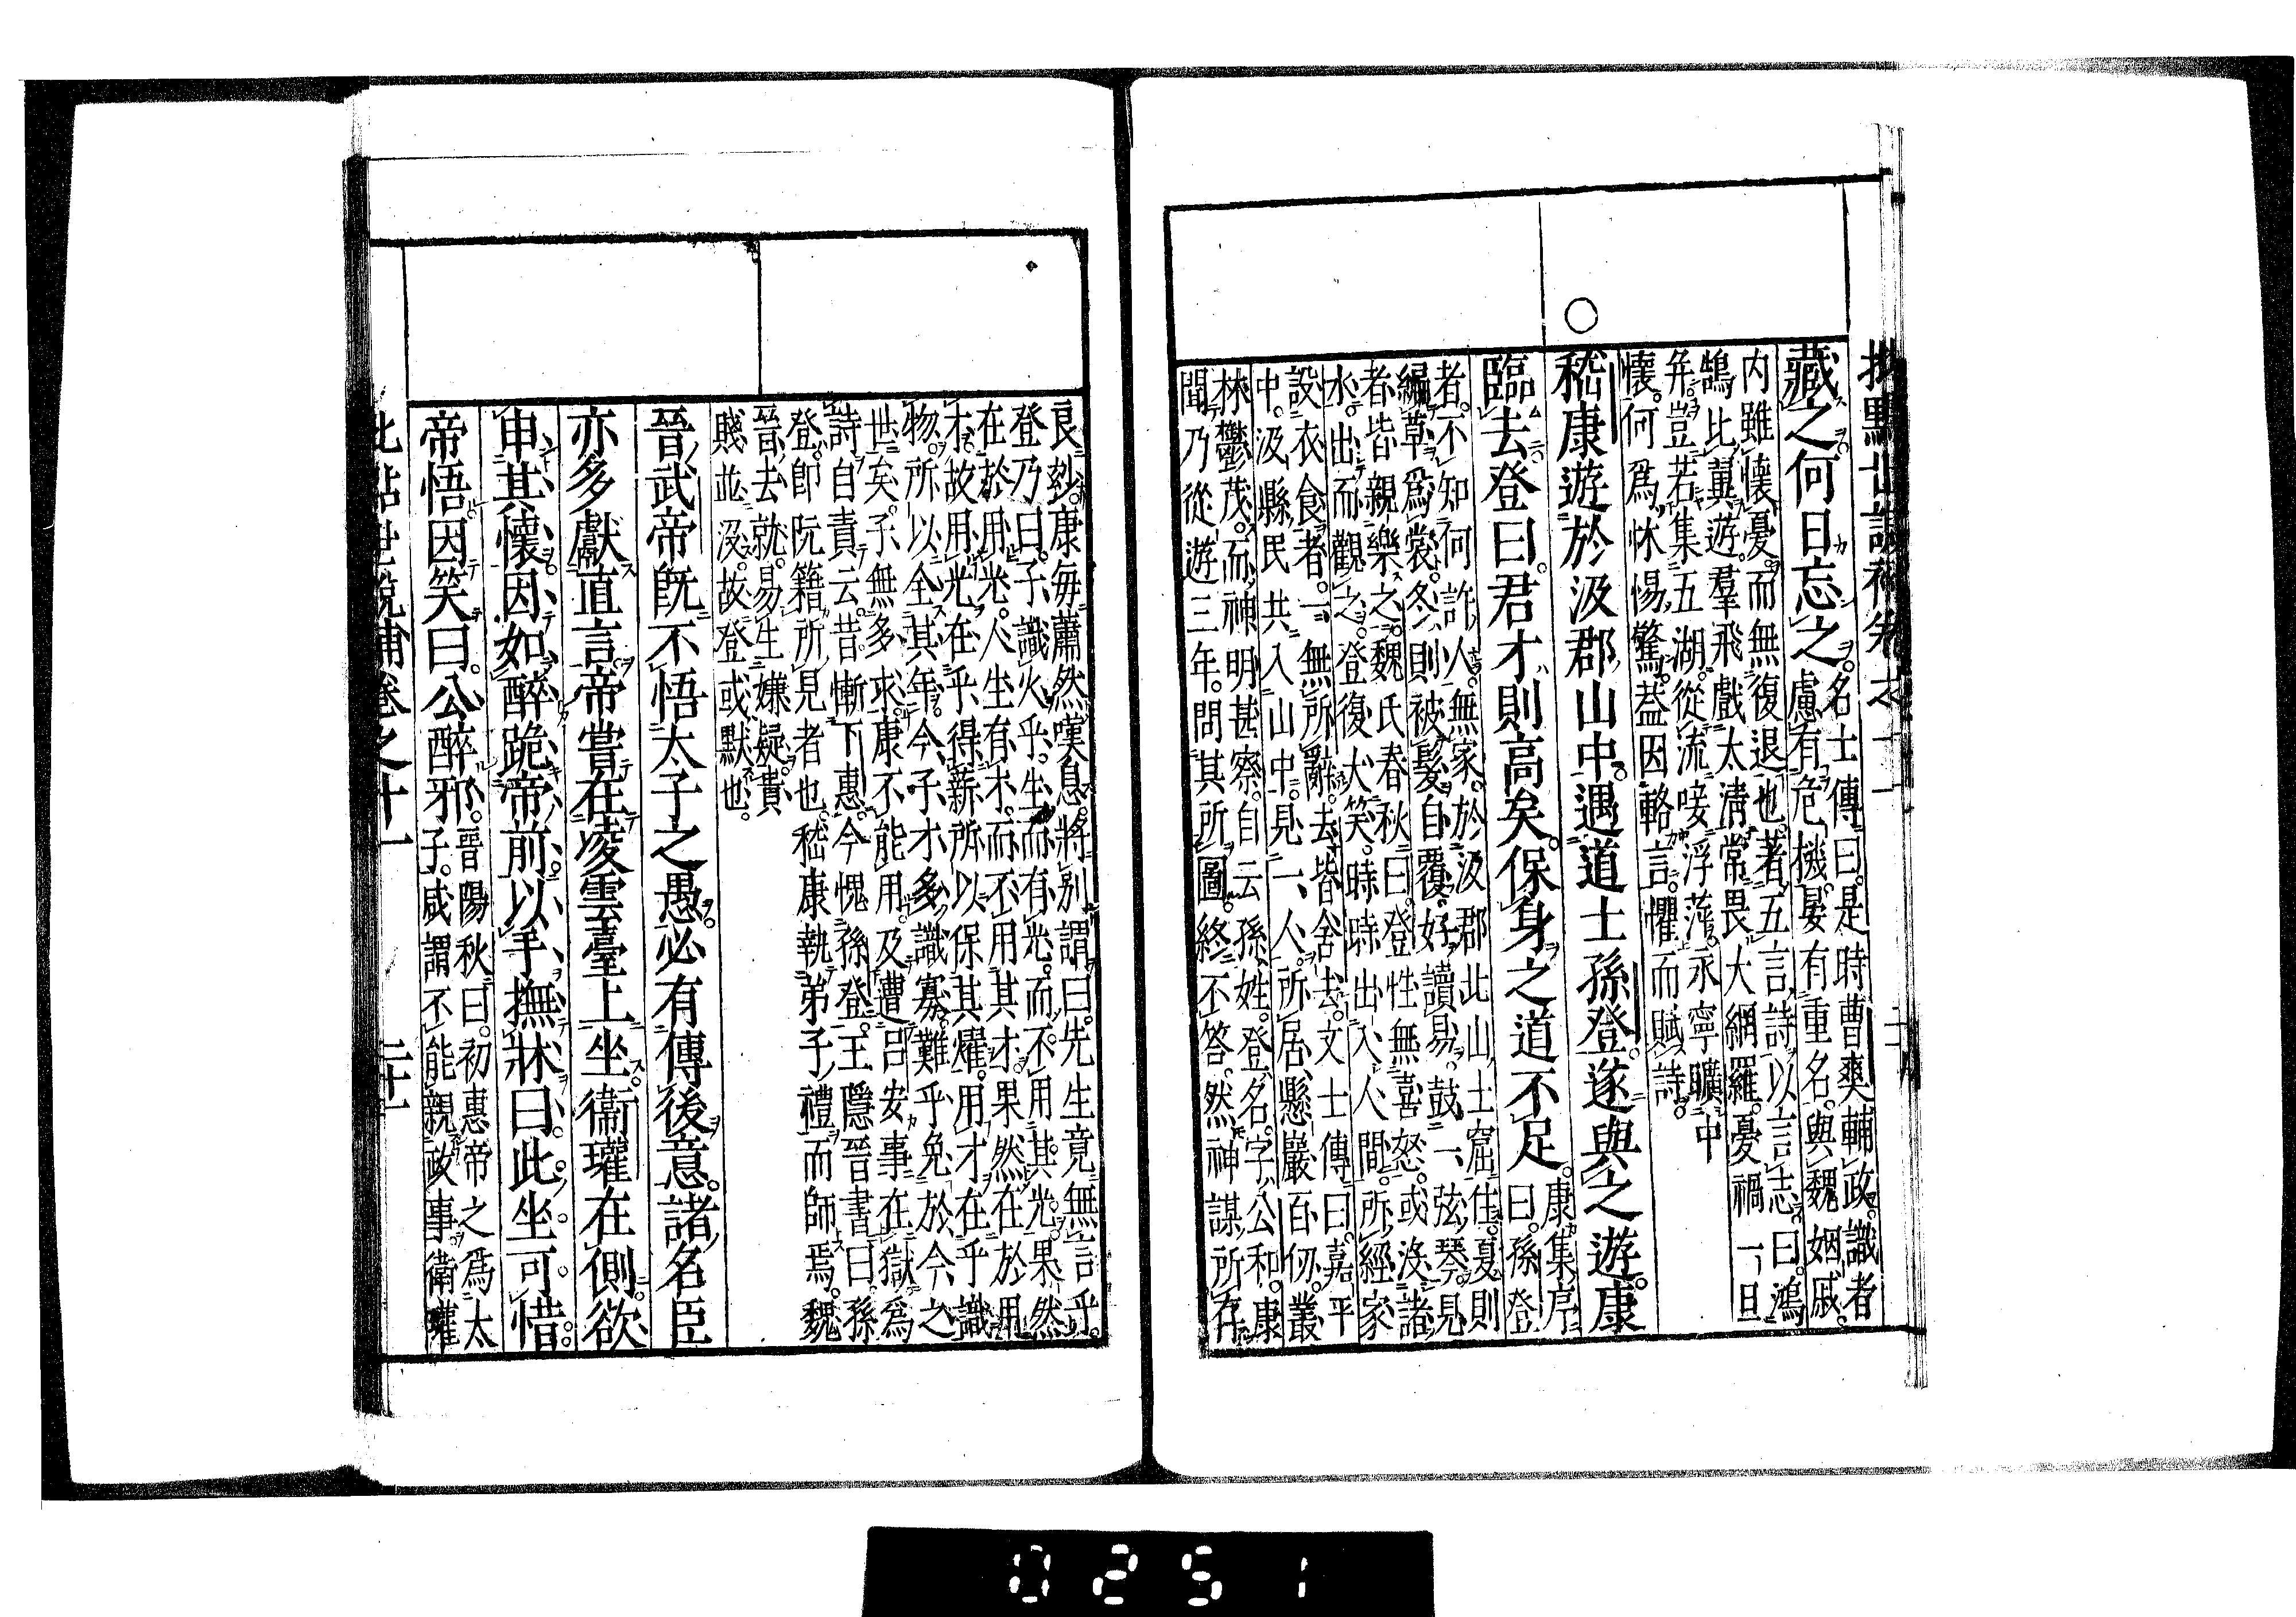 批點世說補卷之十一　二十
藏之。何日忘之。
名士傳曰。是時曹爽輔政。識者
慮有危機。晏有重名。與魏姻戚。
内雖懷憂。而無復退也。著五言詩以言志。曰。鴻
鵠比翼遊。羣飛戲太清。常畏大網羅。憂禍一旦
并。豈若集五湖。從流唼浮萍。永寧曠中
懷。何爲怵惕驚。蓋因輅言。懼而賦詩。
○嵇康遊於汲郡山中。遇道士孫登。遂與之遊。康
臨去。登曰。君才則高矣。保身之道不足。
康集序
曰。孫登
者。不知何許人。無家。於汲郡北山土窟住。夏則
編草爲裳。冬則被髮自覆。好讀易。鼓一弦琴。見
者皆親樂之。魏氏春秋曰。登性無喜怒。或沒諸
水。出而觀之。登復大笑。時時出入人間。所經家
設衣食者。一無所辭。去皆舍去。文士傳曰。嘉平
中。汲縣民共入山中。見一人。所居懸巖百仞。叢
林鬱茂。而神明甚察。自云孫姓。登名。字公和。康
聞乃從遊三年。問其所圖。終不答。然神謀所存
良玅。康每薾然嘆息。將別。謂曰。先生竟無言乎。
登乃曰。子識火乎。生而有光。而不用其光。果然
在於用光。人生有才。而不用其才。果然在於用
才。故用光在乎得薪。所以保其耀。用才在乎識
物。所以全其年。今子才多識寡。難乎免於今之
世矣。子無多求。康不能用。及遭呂安事在獄。爲
詩自責云。昔慚下惠。今愧孫登。王隱晉書曰。孫
登。即阮籍所見者也。嵇康執弟子禮而師焉。魏
晉去就。易生嫌疑。貴
賤並沒。故登或默也。
晉武帝既不悟太子之愚。必有傳後意。諸名臣
亦多獻直言。帝嘗在凌雲臺上坐。衞瓘在側。欲
申其懷。因如醉跪帝前。以手撫牀曰。此坐可惜。
帝悟。因笑曰。公醉邪。
晉陽秋曰。初惠帝之爲太
子。咸謂不能親政事。衞瓘
批點世說補卷之十一　二十一
0251